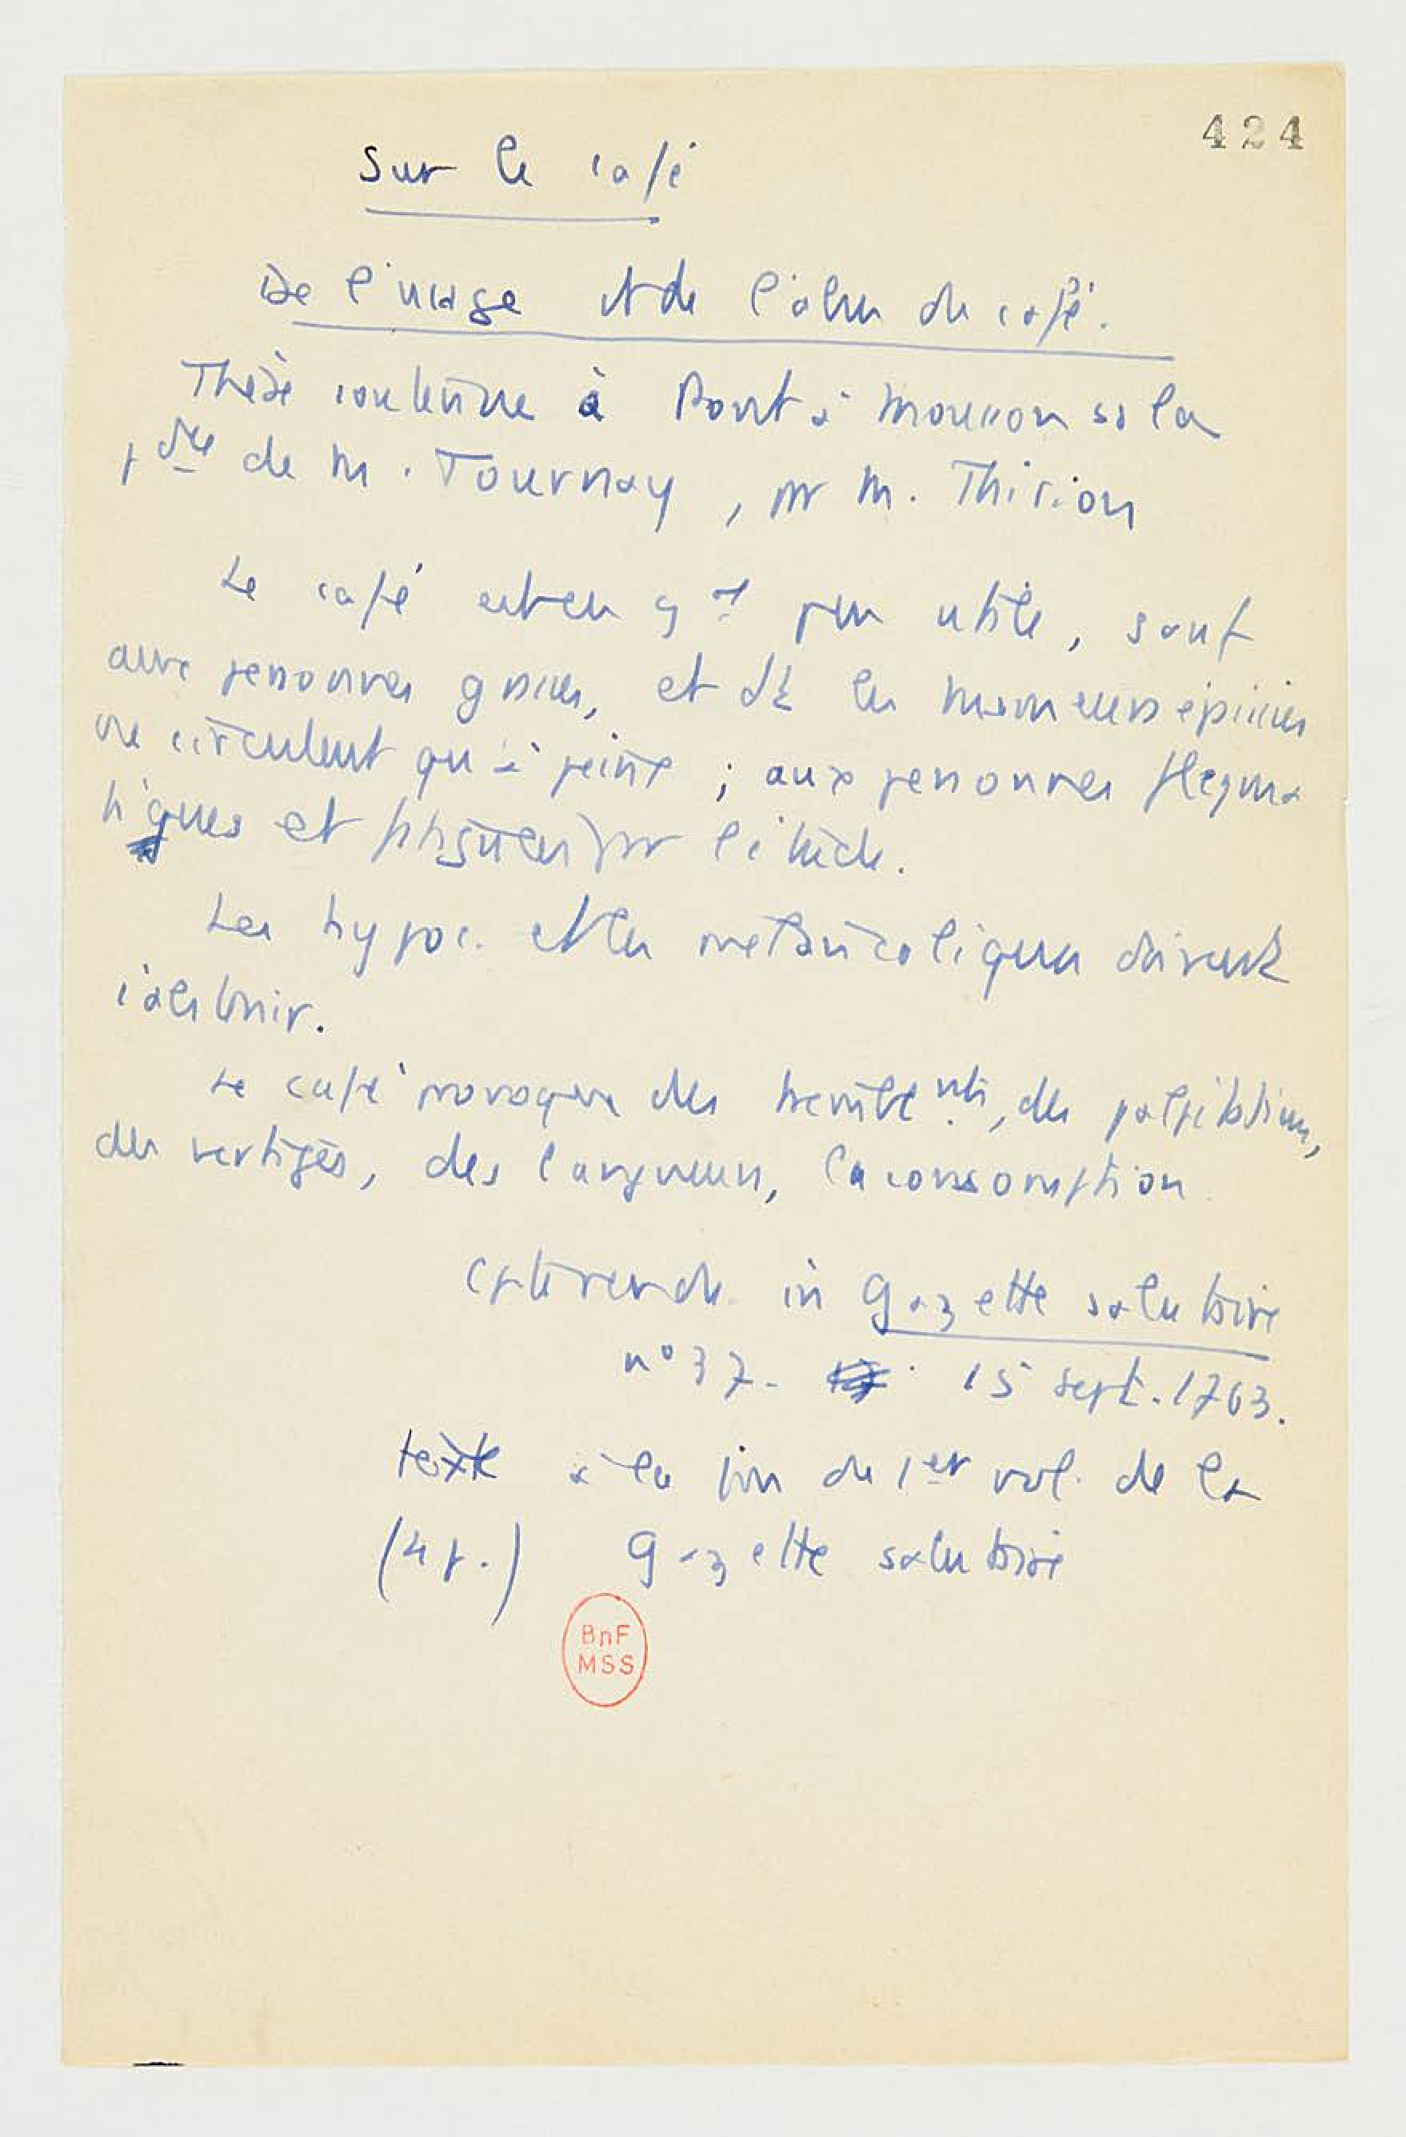 424
Sur le café
De l'usage et de l'abus du café.
Thèse soutenue à Pont à Mousson ss la
pdce de M. Tournay, pr M. Thirion
Le café est en gal peu utile, sauf
aux personnes grasses, et dt les humeurs épaissies
ne circulent qu'à peine ; aux personnes flegma
tiques et fatiguées par l'étude.
Les hypoc. et les mélancoliques doivent
s'abstenir.
Le café provoque des tremblemts, des palpitations,
des vertiges, des langueurs, la consomption
Cpte rendu in Gazette salutaire
n° 37. 15 sept. 1763.
texte à la fin du 1er vol. de la
(4 p.) Gazette salutaire
BnF
MSS